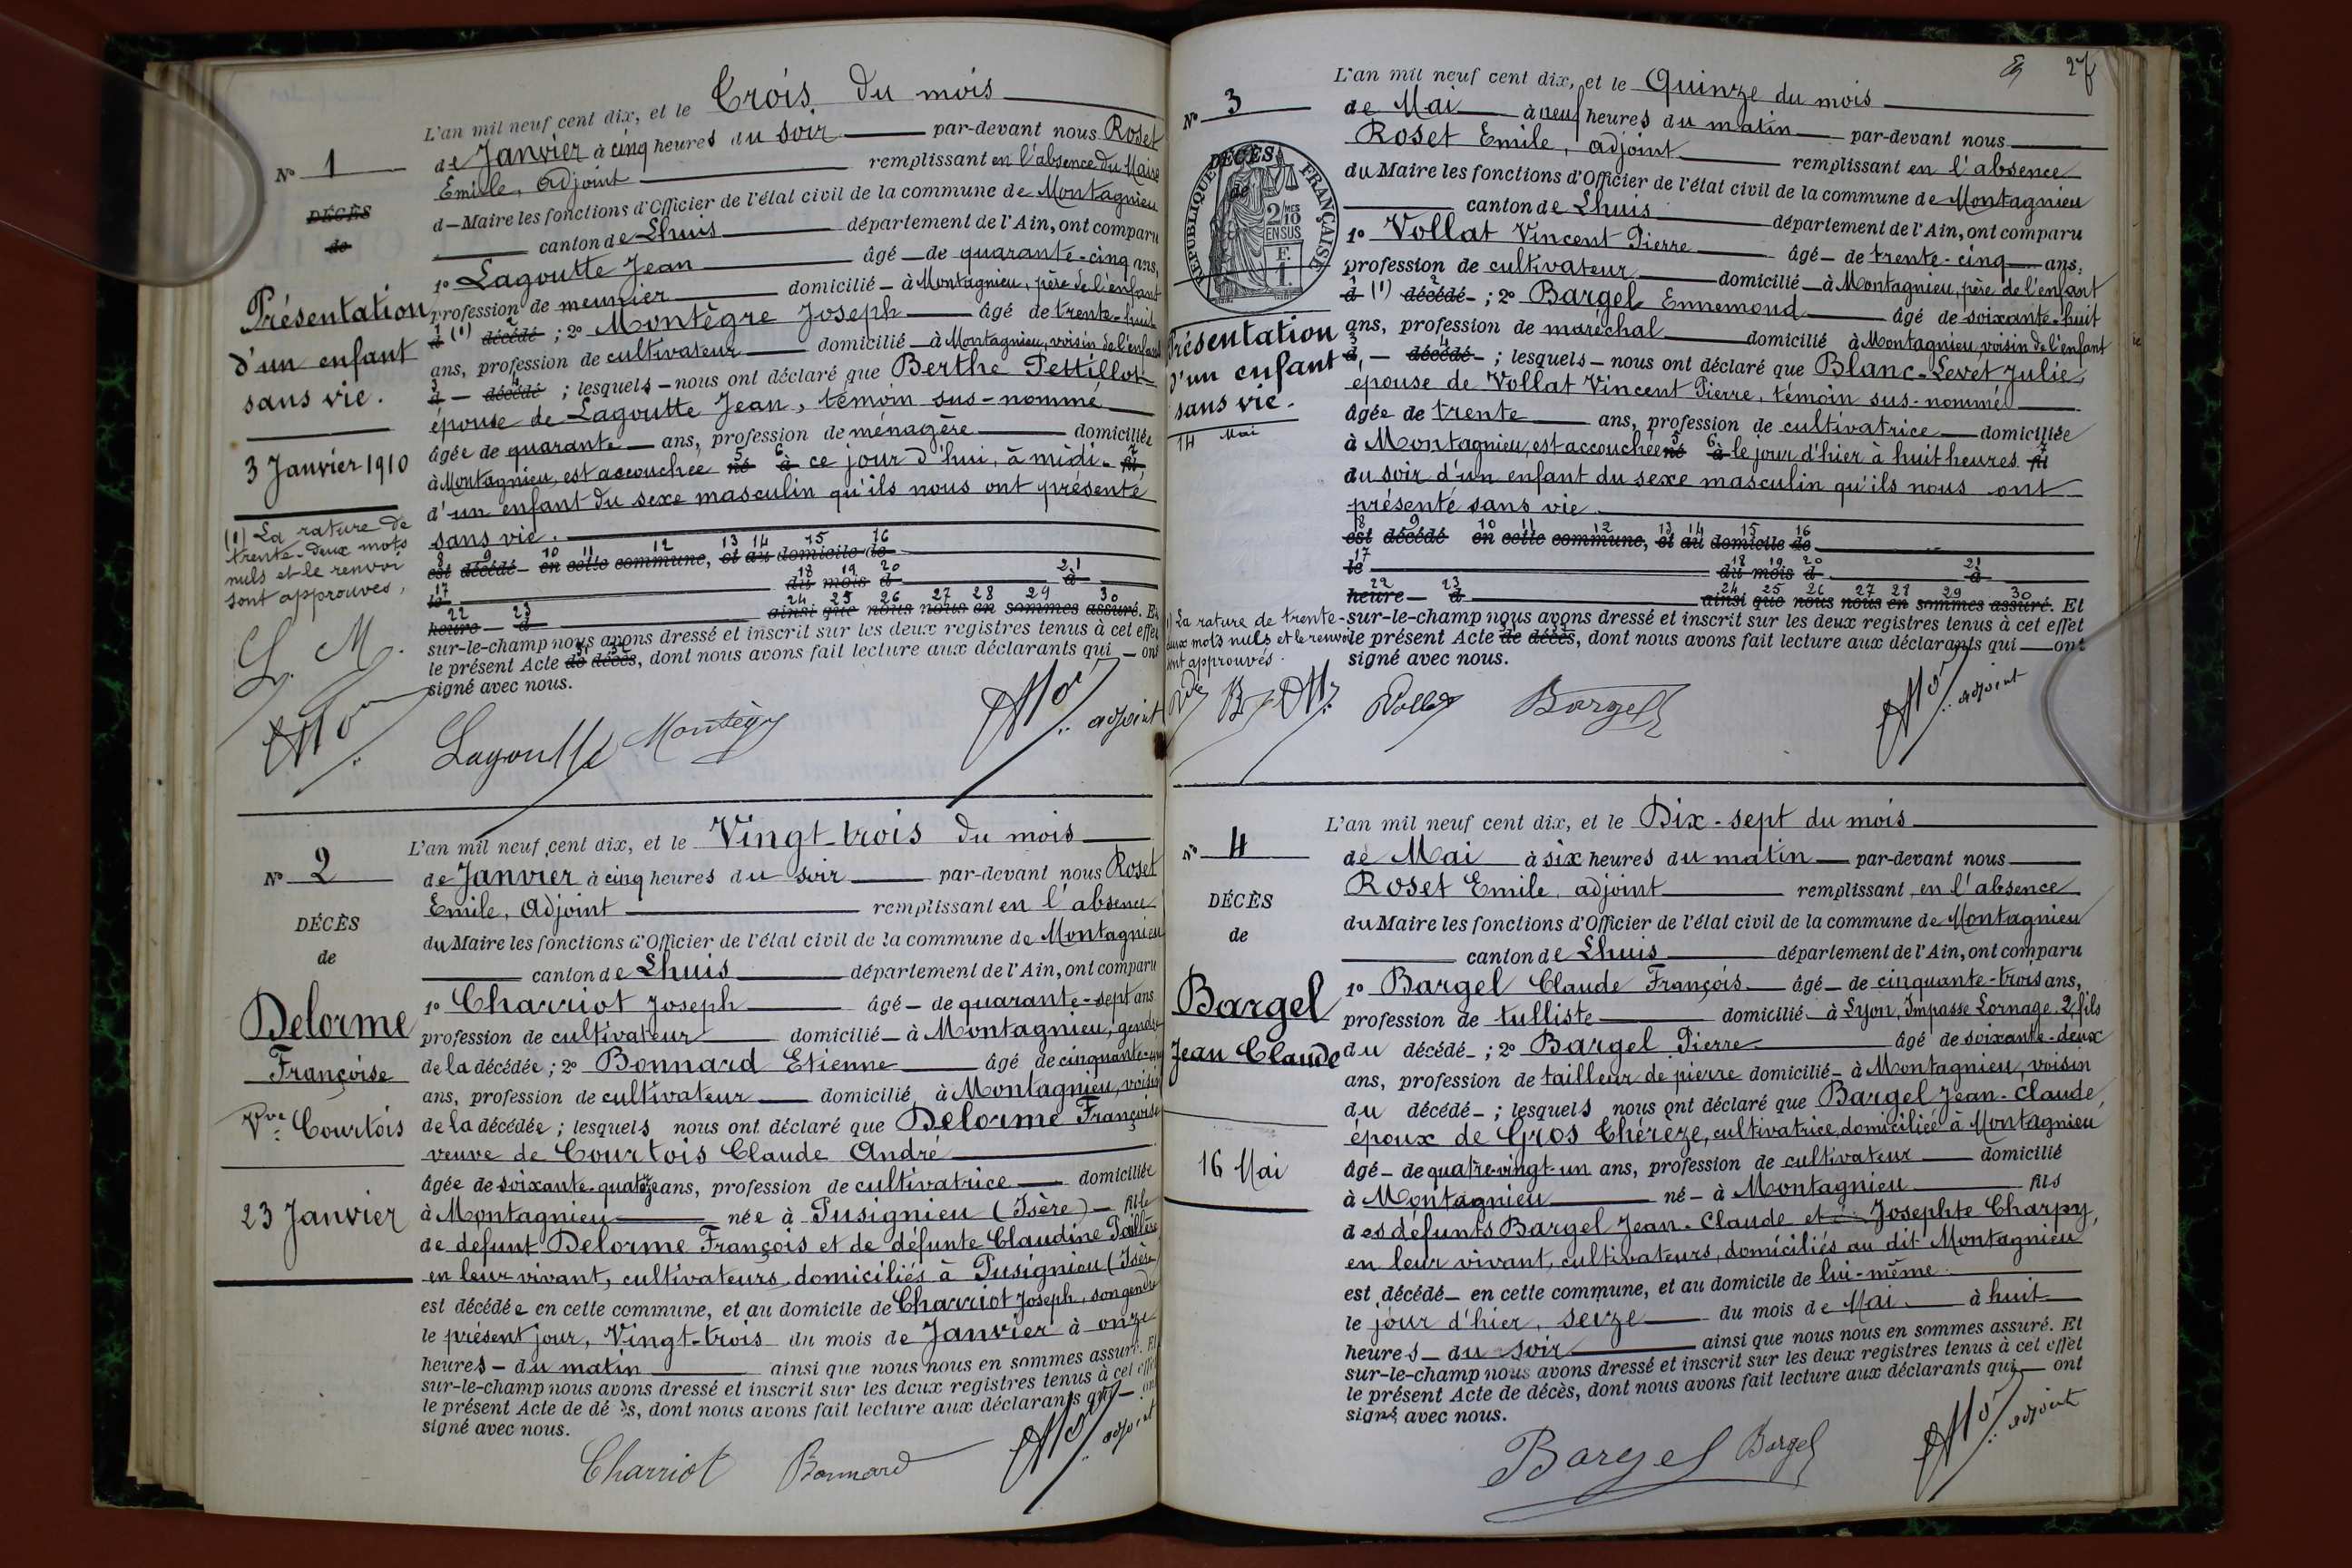 L'an mil neuf cent dix, et le Trois du mois
de Janvier à cinq heures du soir par-devant nous Roset
Emile, Adjoint remplissant en l'absence du Maire
d-Maire les fonctions d'Officier de l'état civil de la commune de Montagnieu
canton de Lhuis département de l'Ain, ont comparu
1º Lagoutte Jean âgé de quarante-cinq ans,
profession de meunier domicilié à Montagnieu, père de l'enfant
1 2
d (1) décédé ; 2º Montègre Joseph âgé de trente-huit
ans, profession de cultivateur domicilié à Montagnieu, voisin de l'enfant
3 4
d décédé ; lesquels nous ont déclaré que Berthe Pettillot
épouse de Lagoutte Jean, témoin sus-nommé
âgée de quarante ans, profession de ménagère domiciliée
5 6 7
à Montagnieu, est accouchée né à ce jour d'hui, à midi. fil
d'un enfant du sexe masculin qu'ils nous ont présenté
sans vie.
8 9 10 11 12 13 14 15 16
est décédé en cette commune, et au domicile de
17 18 19 20 21
le du mois d à
22 23 24 25 26 27 28 29 30
heure d ainsi que nous nous en sommes assuré. Et
sur-le-champ nous avons dressé et inscrit sur les deux registres tenus à cet effet
31 32
le présent Acte de décès, dont nous avons fait lecture aux déclarants qui ont
signé avec nous.
Nº 1
DÉCÈS
de
Présentation
d'un enfant
sans vie.
3 Janvier 1910
(1) La rature de
trente-deux mots
nuls et le renvoi
sont approuvés,
L. M.
Lagoutte Montègre
adjoint
L'an mil neuf cent dix, et le Vingt-trois du mois
de Janvier à cinq heures du soir par-devant nous Roset
Emile, Adjoint remplissant en l'absence
du Maire les fonctions d'Officier de l'état civil de la commune de Montagnieu
canton de Lhuis département de l'Ain, ont comparu
1º Charriot Joseph âgé de quarante-sept ans
profession de cultivateur domicilié à Montagnieu, gendre
de la décédée ; 2º Bonnard Etienne âgé de cinquante-un
ans, profession de cultivateur domicilié à Montagnieu, voisin
de la décédée ; lesquels nous ont déclaré que Delorme Françoise
veuve de Courtois Claude André
âgée de soixante-quatorze ans, profession de cultivatrice domiciliée
à Montagnieu née à Pusignieu (Isère) fille
de défunt Delorme François et de défunte Claudine
en leur vivant, cultivateurs domiciliés à Pusignieu (Isère)
est décédée en cette commune, et au domicile de Charriot Joseph, son gendre
le présent jour, Vingt-trois du mois de Janvier à onze
heures du matin ainsi que nous nous en sommes assuré. Et
sur-le-champ nous avons dressé et inscrit sur les deux registres tenus à cet effet
le présent Acte de décès, dont nous avons fait lecture aux déclarants qui ont
signé avec nous.
Nº 2
DÉCÈS
de
Delorme
Françoise
Vve Courtois
23 Janvier
Charriot Bonnard adjoint
27
L'an mil neuf cent dix, et le Quinze du mois
de Mai à neuf heures du matin par-devant nous
Roset Emile, adjoint remplissant en l'absence
du Maire les fonctions d'Officier de l'état civil de la commune de Montagnieu
canton de Lhuis département de l'Ain, ont comparu
1º Vollat Vincent Pierre âgé de trente-cinq ans,
profession de cultivateur domicilié à Montagnieu, père de l'enfant
1 2
d (1) décédé ; 2º Bargel Ennemond âgé de soixante-huit
ans, profession de maréchal domicilié à Montagnieu, voisin de l'enfant
3 4
d, décédé ; lesquels nous ont déclaré que Blanc-Levet Julie,
épouse de Vollat Vincent Pierre, témoin sus-nommé
âgée de trente ans, profession de cultivatrice domiciliée
5 6 7
à Montagnieu, est accouchée né à le jour d'hier à huit heures fil
du soir d'un enfant du sexe masculin qu'ils nous ont
présenté sans vie.
8 9 10 11 12 13 14 15 16
est décédé en cette commune, et au domicile de
17 18 19 20 21
le du mois d à
22 23 24 25 26 27 28 29 30
heure d ainsi que nous nous en sommes assuré. Et
sur-le-champ nous avons dressé et inscrit sur les deux registres tenus à cet effet
31 32
le présent Acte de décès, dont nous avons fait lecture aux déclarants qui ont
signé avec nous.
Nº 3
DÉCÈS
de
RÉPUBLIQUE FRANÇAISE
2/10 MES
EN SUS
F.
1.
Présentation
d'un enfant
sans vie.
14 Mai
(1) La rature de trente-
deux mots nuls et le renvoi
sont approuvés.
Bargel
adjoint
L'an mil neuf cent dix, et le Dix-sept du mois
de Mai à six heures du matin par-devant nous
Roset Emile, adjoint remplissant en l'absence
du Maire les fonctions d'Officier de l'état civil de la commune de Montagnieu
canton de Lhuis département de l'Ain, ont comparu
1º Bargel Claude François âgé de cinquante-trois ans,
profession de tulliste domicilié à Lyon, Impasse Lornage. 2 fils
du décédé ; 2º Bargel Pierre âgé de soixante-deux
ans, profession de tailleur de pierre domicilié à Montagnieu, voisin
du décédé ; lesquels nous ont déclaré que Bargel Jean-Claude,
époux de Gros Thérèze, cultivatrice, domiciliée à Montagnieu
âgé de quatre-vingt-un ans, profession de cultivateur domicilié
à Montagnieu né à Montagnieu fils
des défunts Bargel Jean-Claude et Josephte Charpy,
en leur vivant, cultivateurs, domiciliés au dit Montagnieu
est décédé en cette commune, et au domicile de lui-même.
le jour d'hier, seize du mois de Mai à huit
heures du soir ainsi que nous nous en sommes assuré. Et
sur-le-champ nous avons dressé et inscrit sur les deux registres tenus à cet effet
le présent Acte de décès, dont nous avons fait lecture aux déclarants qui ont
signé avec nous.
Nº 4
DÉCÈS
de
Bargel
Jean Claude
16 Mai
Bargel Bargel adjoint